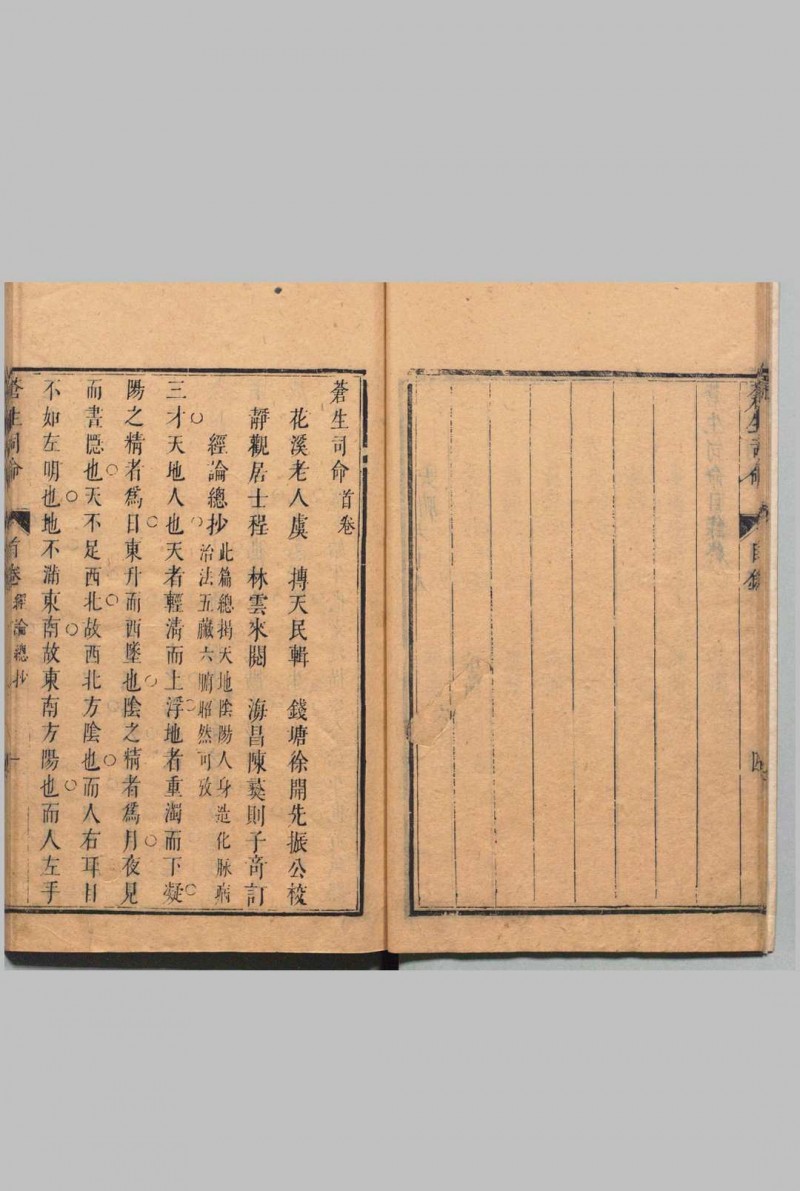 蒼生司命
目錄
四
蒼生司命首卷
花溪老人虞摶天民輯 錢塘徐開先振公校
靜觀居士程林雲來閱 海昌陳葵則子竒訂
經論總抄
此篇總揭天地陰陽人身造化脉病
治法五臟六腑昭然可攷
三才天地人也天者輕清而上浮地者重濁而下凝
陽之精者爲日東升而西墜也陰之精者爲月夜見
而晝隱也天不足西北故西北方陰也而人右耳目
不如左明也地不滿東南故東南方陽也而人左手
蒼生司命
首卷
經論總抄
一